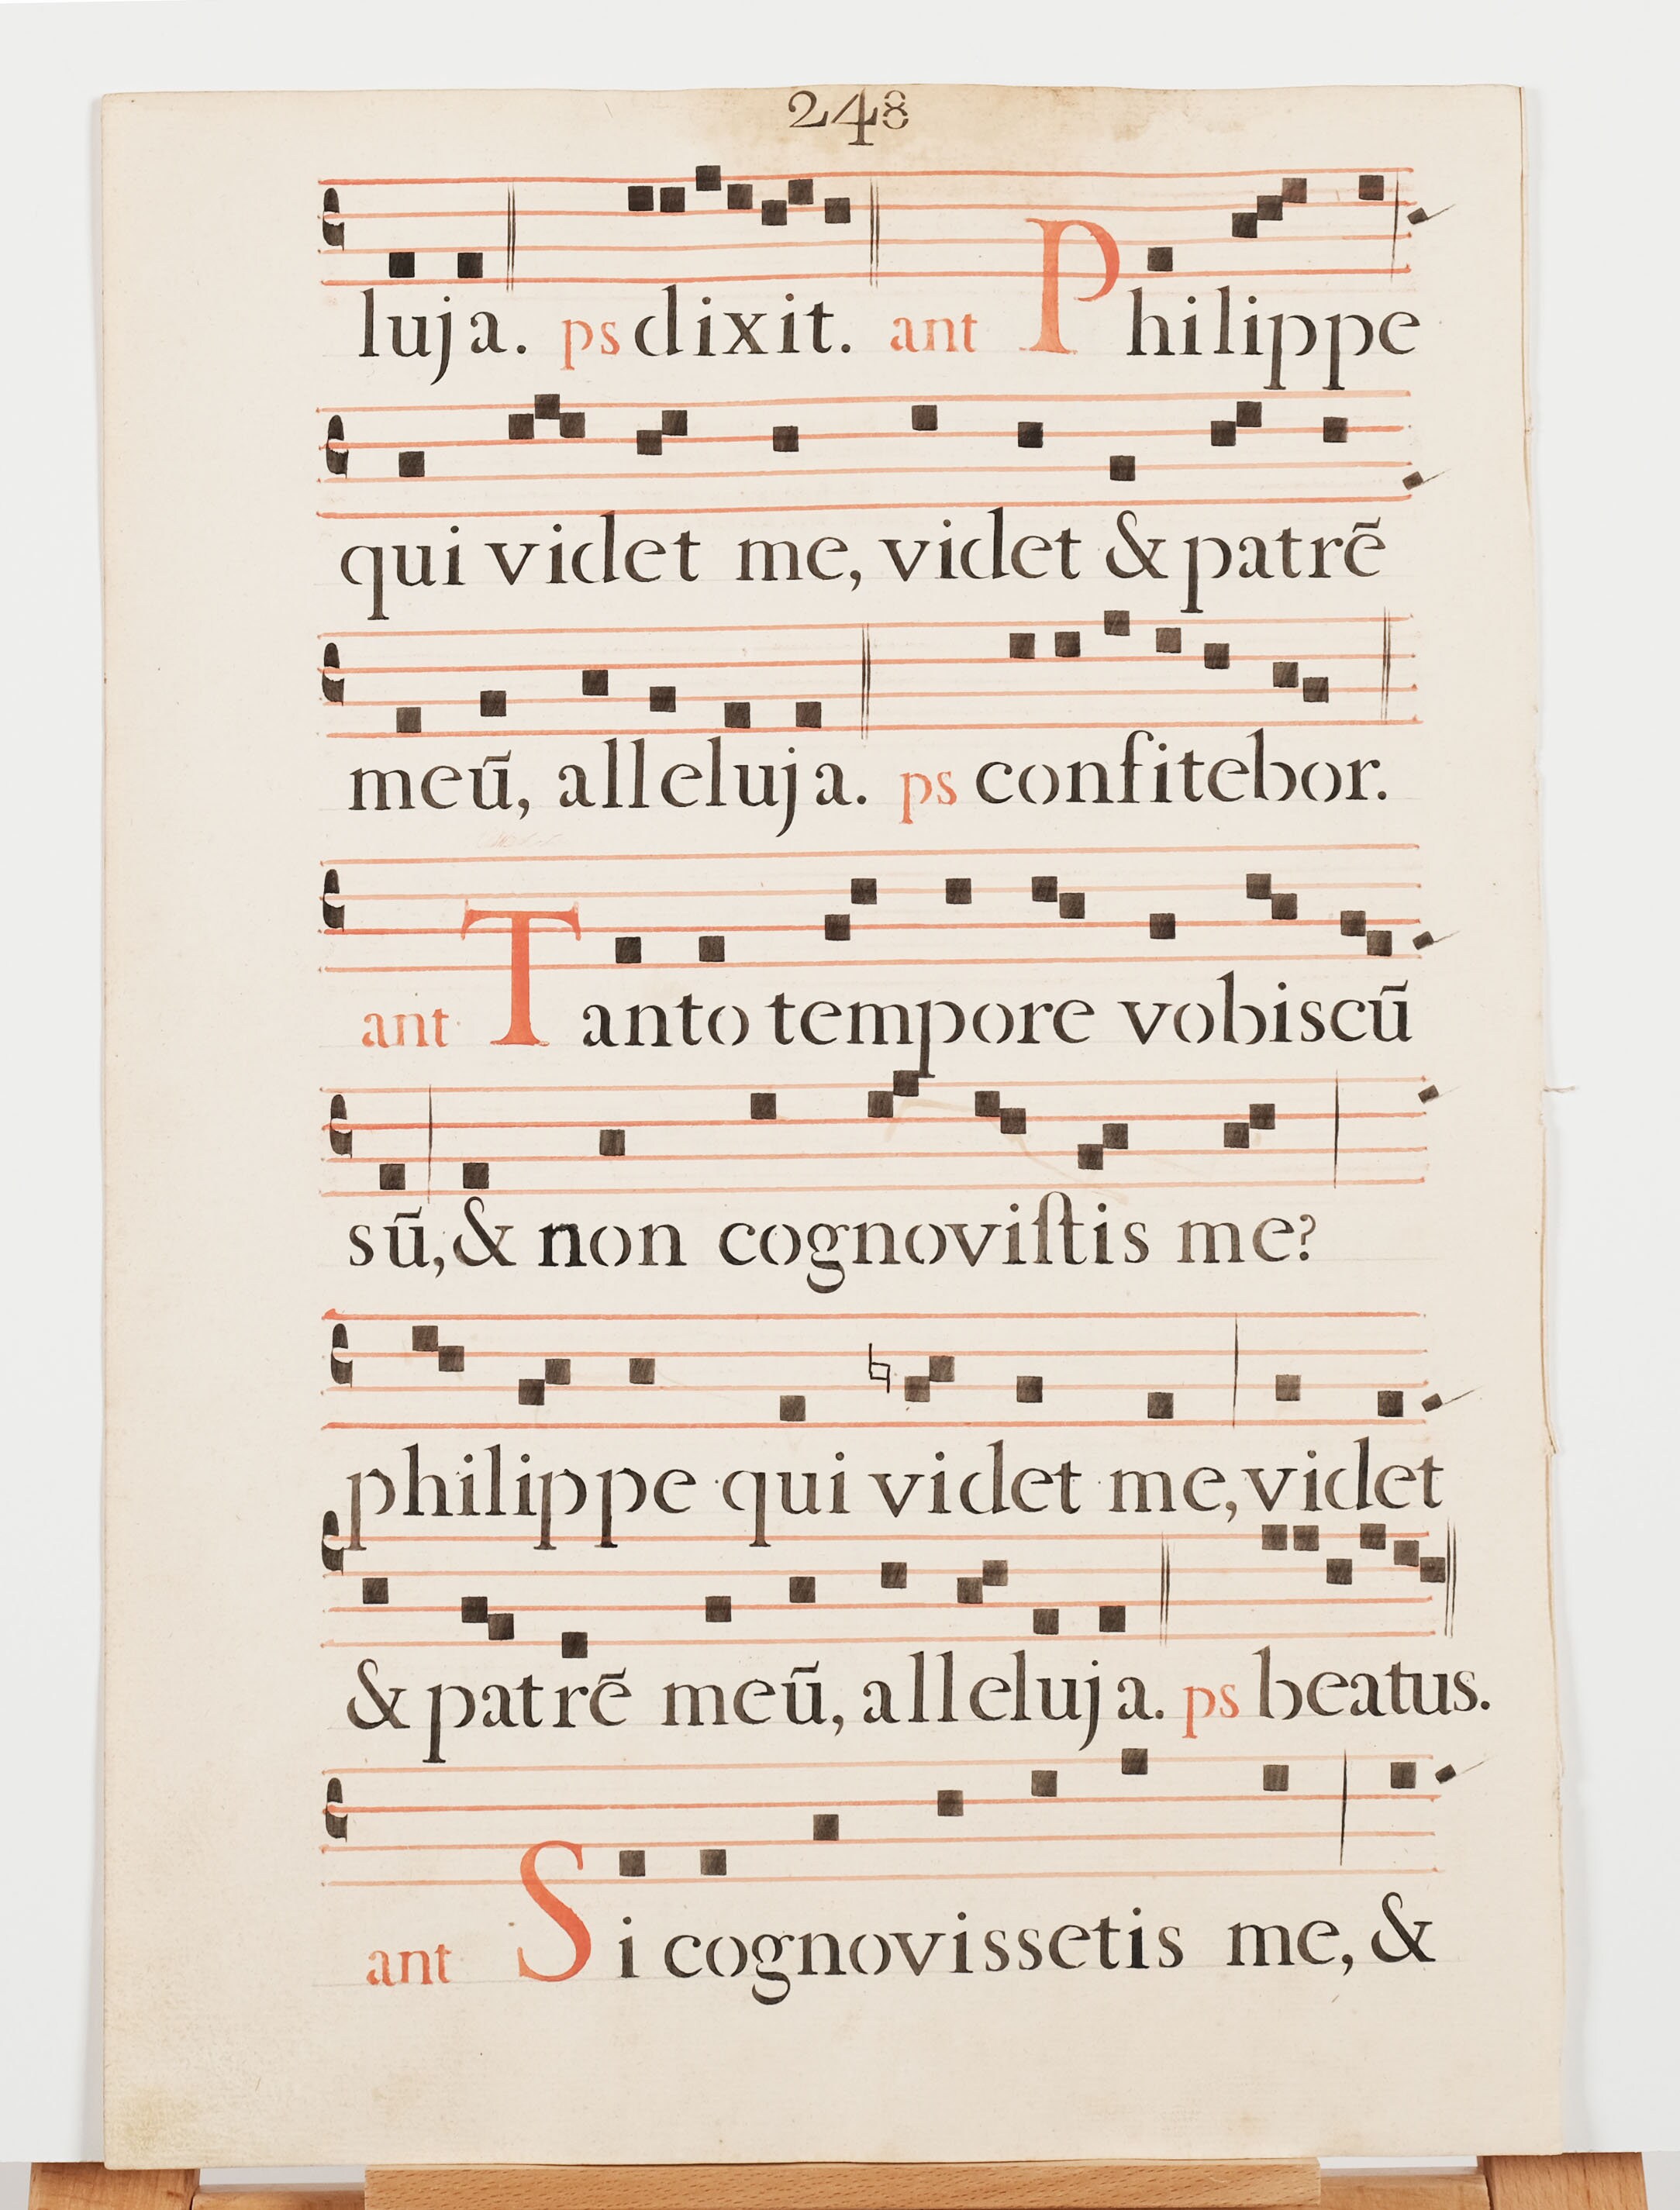 248
luja. ps dixit. ant Philippe
qui videt me, videt & patrē
meū, alleluja. ps confitebor.
ant Tanto tempore vobiscū
sū, & non cognoviſtis me?
philippe qui videt me, videt
& patrē meū, alleluja. ps beatus.
ant Si cognovissetis me, &